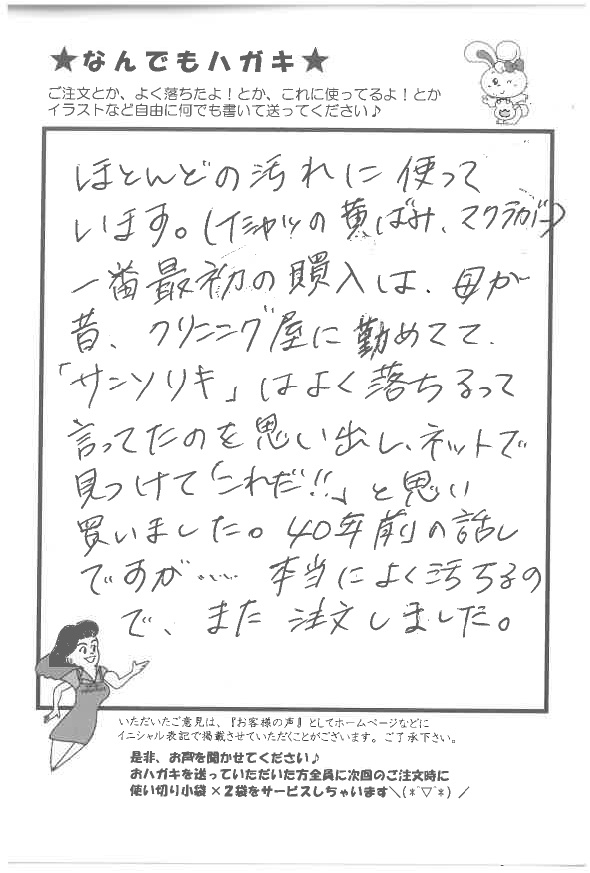 ★なんでもハガキ★
ご注文とか、よく落ちたよ！とか、これに使ってるよ！とか
イラストなど自由に何でも書いて送ってください♪
ほとんどの汚れに使って
います。(Yシャツの黄ばみ、マクラカバー)
一番最初の購入は、母が
昔、クリーニング屋に勤めてて、
「サンソリキ」はよく落ちるって
言ってたのを思い出し、ネットで
見つけて「これだ!!」と思い
買いました。40年前の話し
ですが…… 本当によく落ちるの
で、また注文しました。
いただいたご意見は、『お客様の声』としてホームページなどに
イニシャル表記で掲載させていただくことがございます。ご了承下さい。
是非、お声を聞かせてください♪
おハガキを送っていただいた方全員に次回のご注文時に
使い切り小袋×2袋をサービスしちゃいます＼(*ˆ▽ˆ*)／